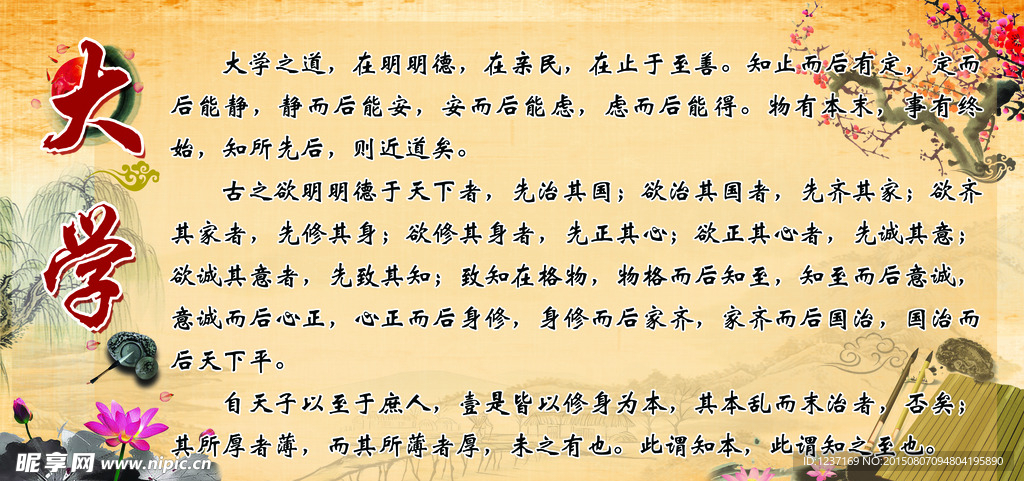 大学
大学之道，在明明德，在亲民，在止于至善。知止而后有定，定而
后能静，静而后能安，安而后能虑，虑而后能得。物有本末，事有终
始，知所先后，则近道矣。
古之欲明明德于天下者，先治其国；欲治其国者，先齐其家；欲齐
其家者，先修其身；欲修其身者，先正其心；欲正其心者，先诚其意；
欲诚其意者，先致其知；致知在格物，物格而后知至，知至而后意诚，
意诚而后心正，心正而后身修，身修而后家齐，家齐而后国治，国治而
后天下平。
自天子以至于庶人，壹是皆以修身为本，其本乱而末治者，否矣；
其所厚者薄，而其所薄者厚，未之有也。此谓知本，此谓知之至也。
昵享网 www.nipic.cn
ID:1237169 NO:20150807094804195890